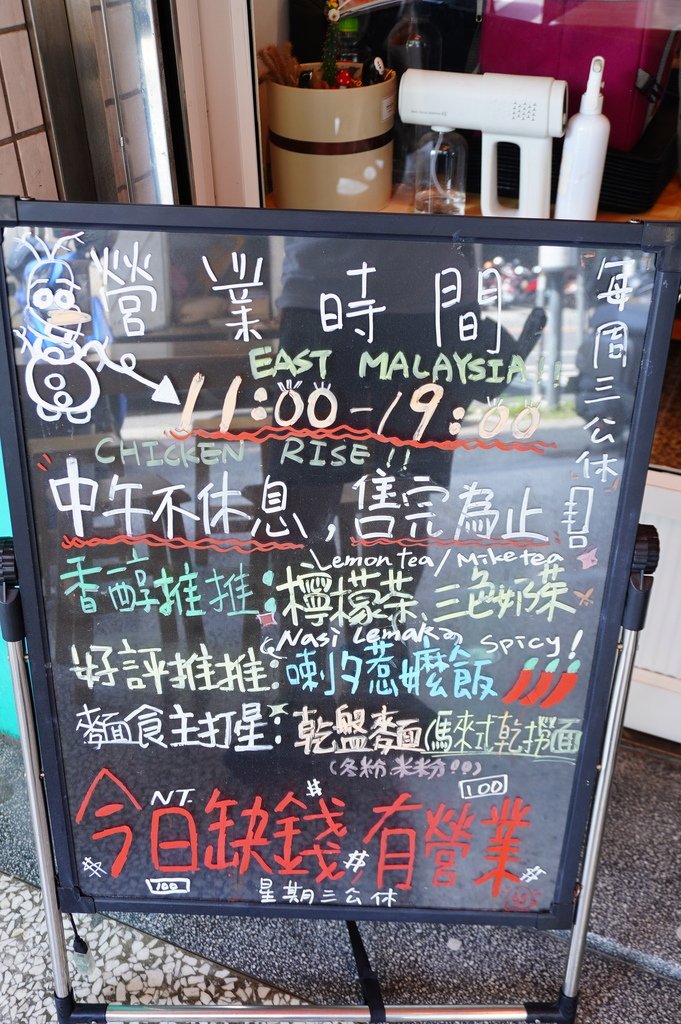 營業時間
每周三公休
EAST MALAYSIA!!
11:00-19:00
CHICKEN RISE!!
中午不休息,售完為止
Lemon tea/Mike tea
香醇推推:檸檬茶、三色奶茶
(Nasi Lemak) spicy!
好評推推:喇夕惹嬤飯
麵食主打星:乾盤麵(馬來式乾撈麵)
(冬粉米粉!!)
NT. # 100
今日缺錢有營業
# # #
100
星期三公休